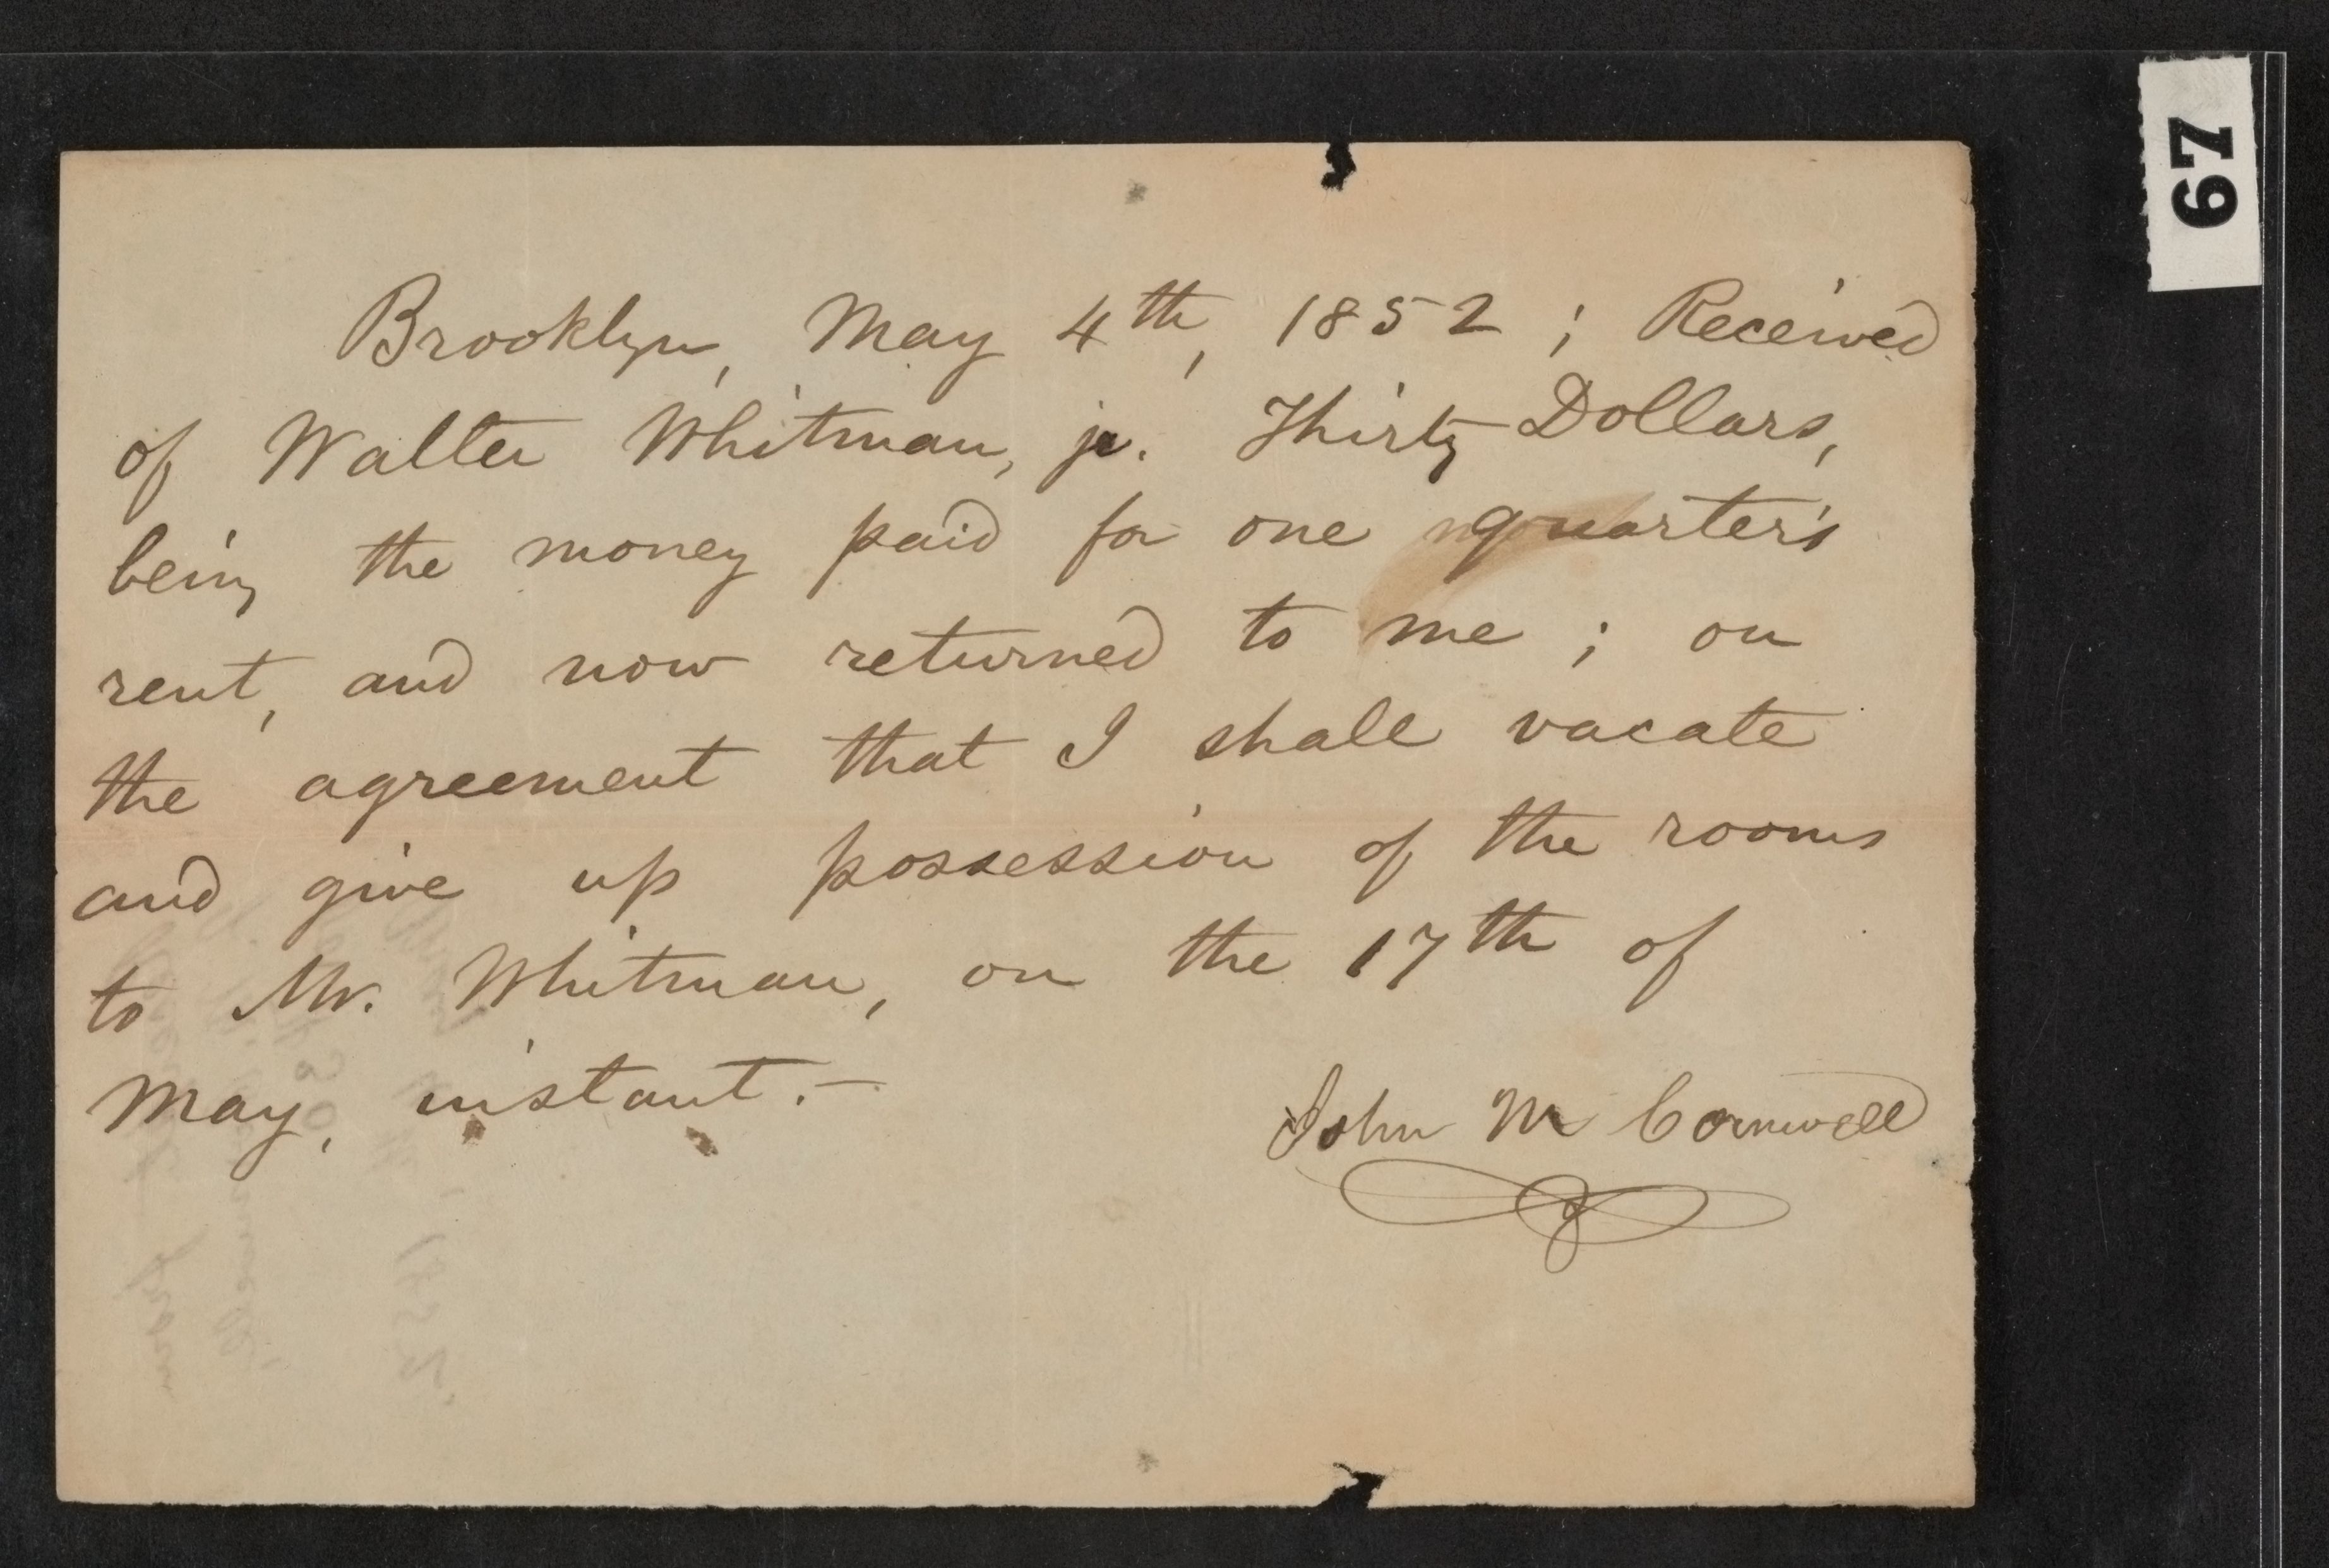 67
Brooklyn, May 4th, 1852 ; Received
of Walter Whitman, jr. Thirty Dollars,
being the money paid for one quarter's
rent, and now returned to me ; on
the agreement that I shall vacate
and give up possession of the rooms
to Mr. Whitman, on the 17th of
May, instant.—
John M Cornwell